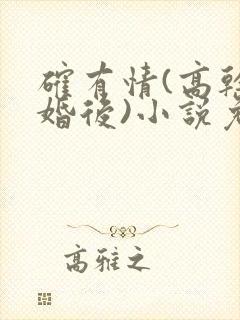 確有情(高幹
婚後)小說
高雅之